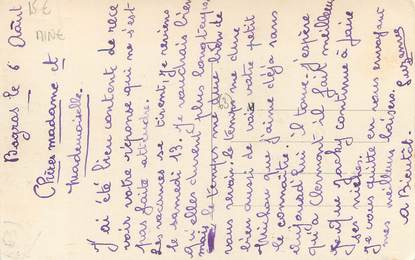 Bagras le 6 Août
Chères madame et
Mademoiselle.
J'ai été bien content de rece
voir votre réponse qui ne s'est
pas faite attendre.
Les vacances se tirent. Je reviens
le samedi 13. Je voudrais bien
qu'elles durent plus longtemps,
mais le temps me dure bien de
vous revoir. Le temps me dure
bien aussi de voir votre petit
Michou que j'aime déjà sans
le connaître.
Aujourd'hui il tonne. J'espère
qu'à Clermont il fait meilleur
et que Jacky continue à faire
ses niches.
Je vous quitte en vous envoyant
mes meilleurs baisers.
à Bientôt. Suzanne
15€